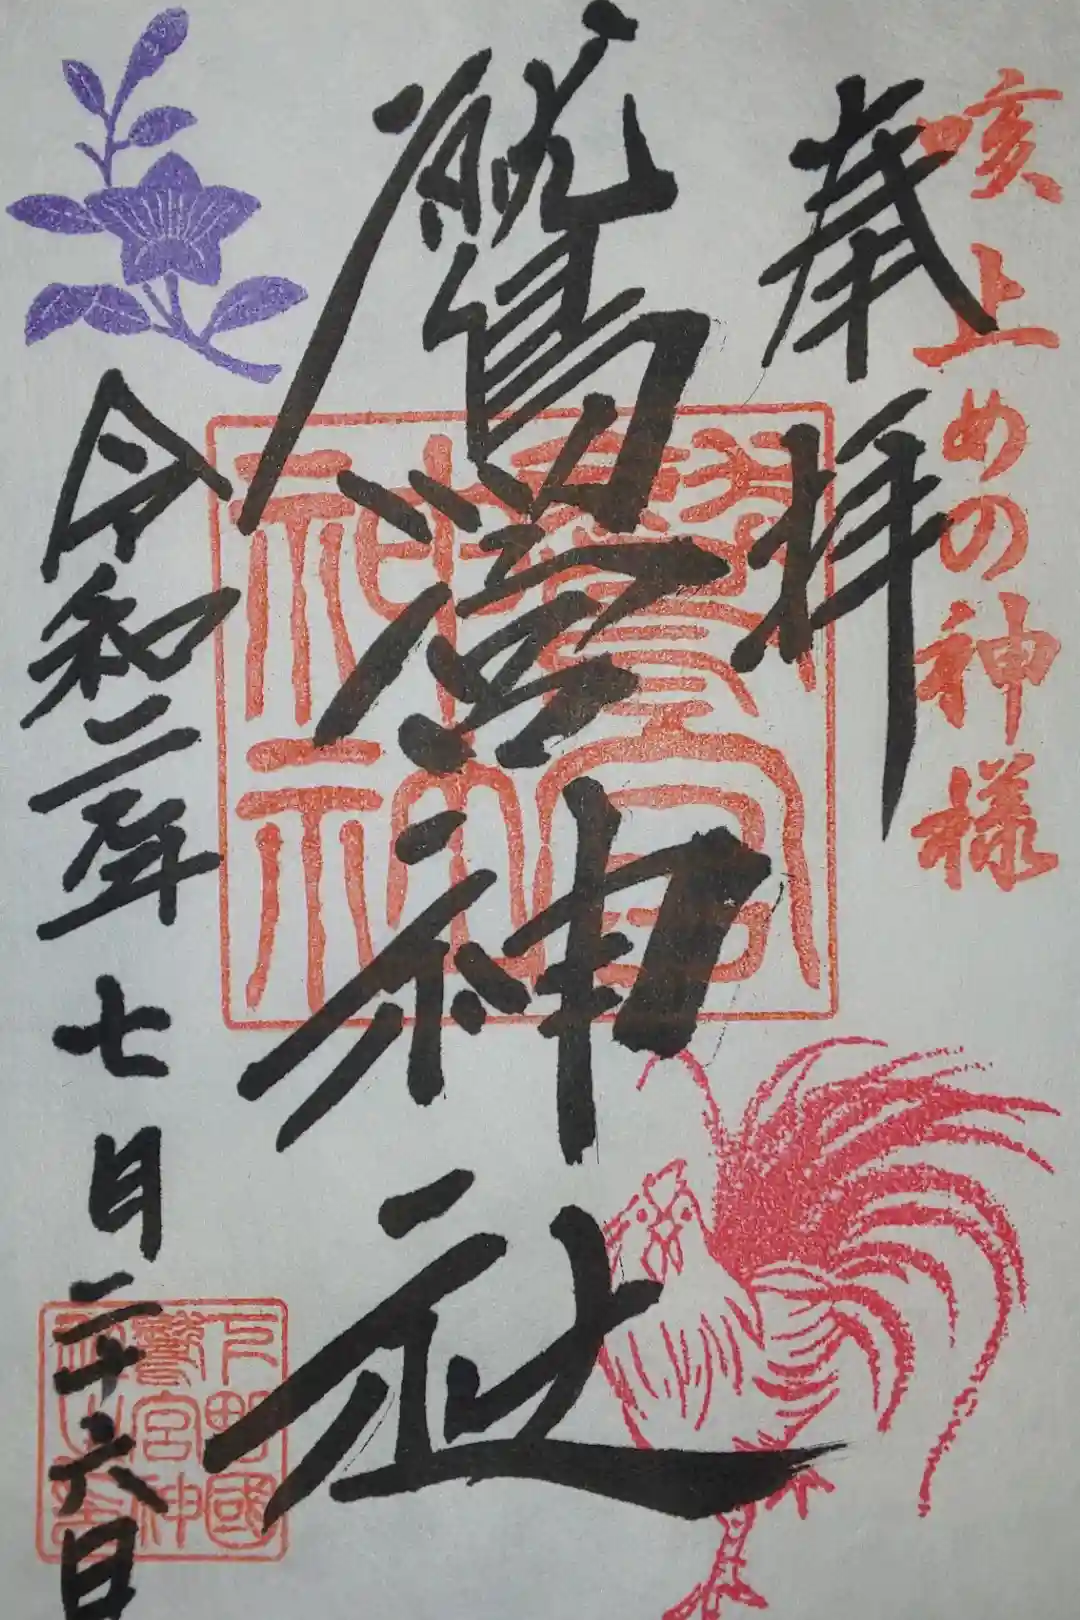 咳止めの神様
奉拝
鷲宮神社
鷲宮
神社
令和二年七月二十六日
下野國
鷲宮神